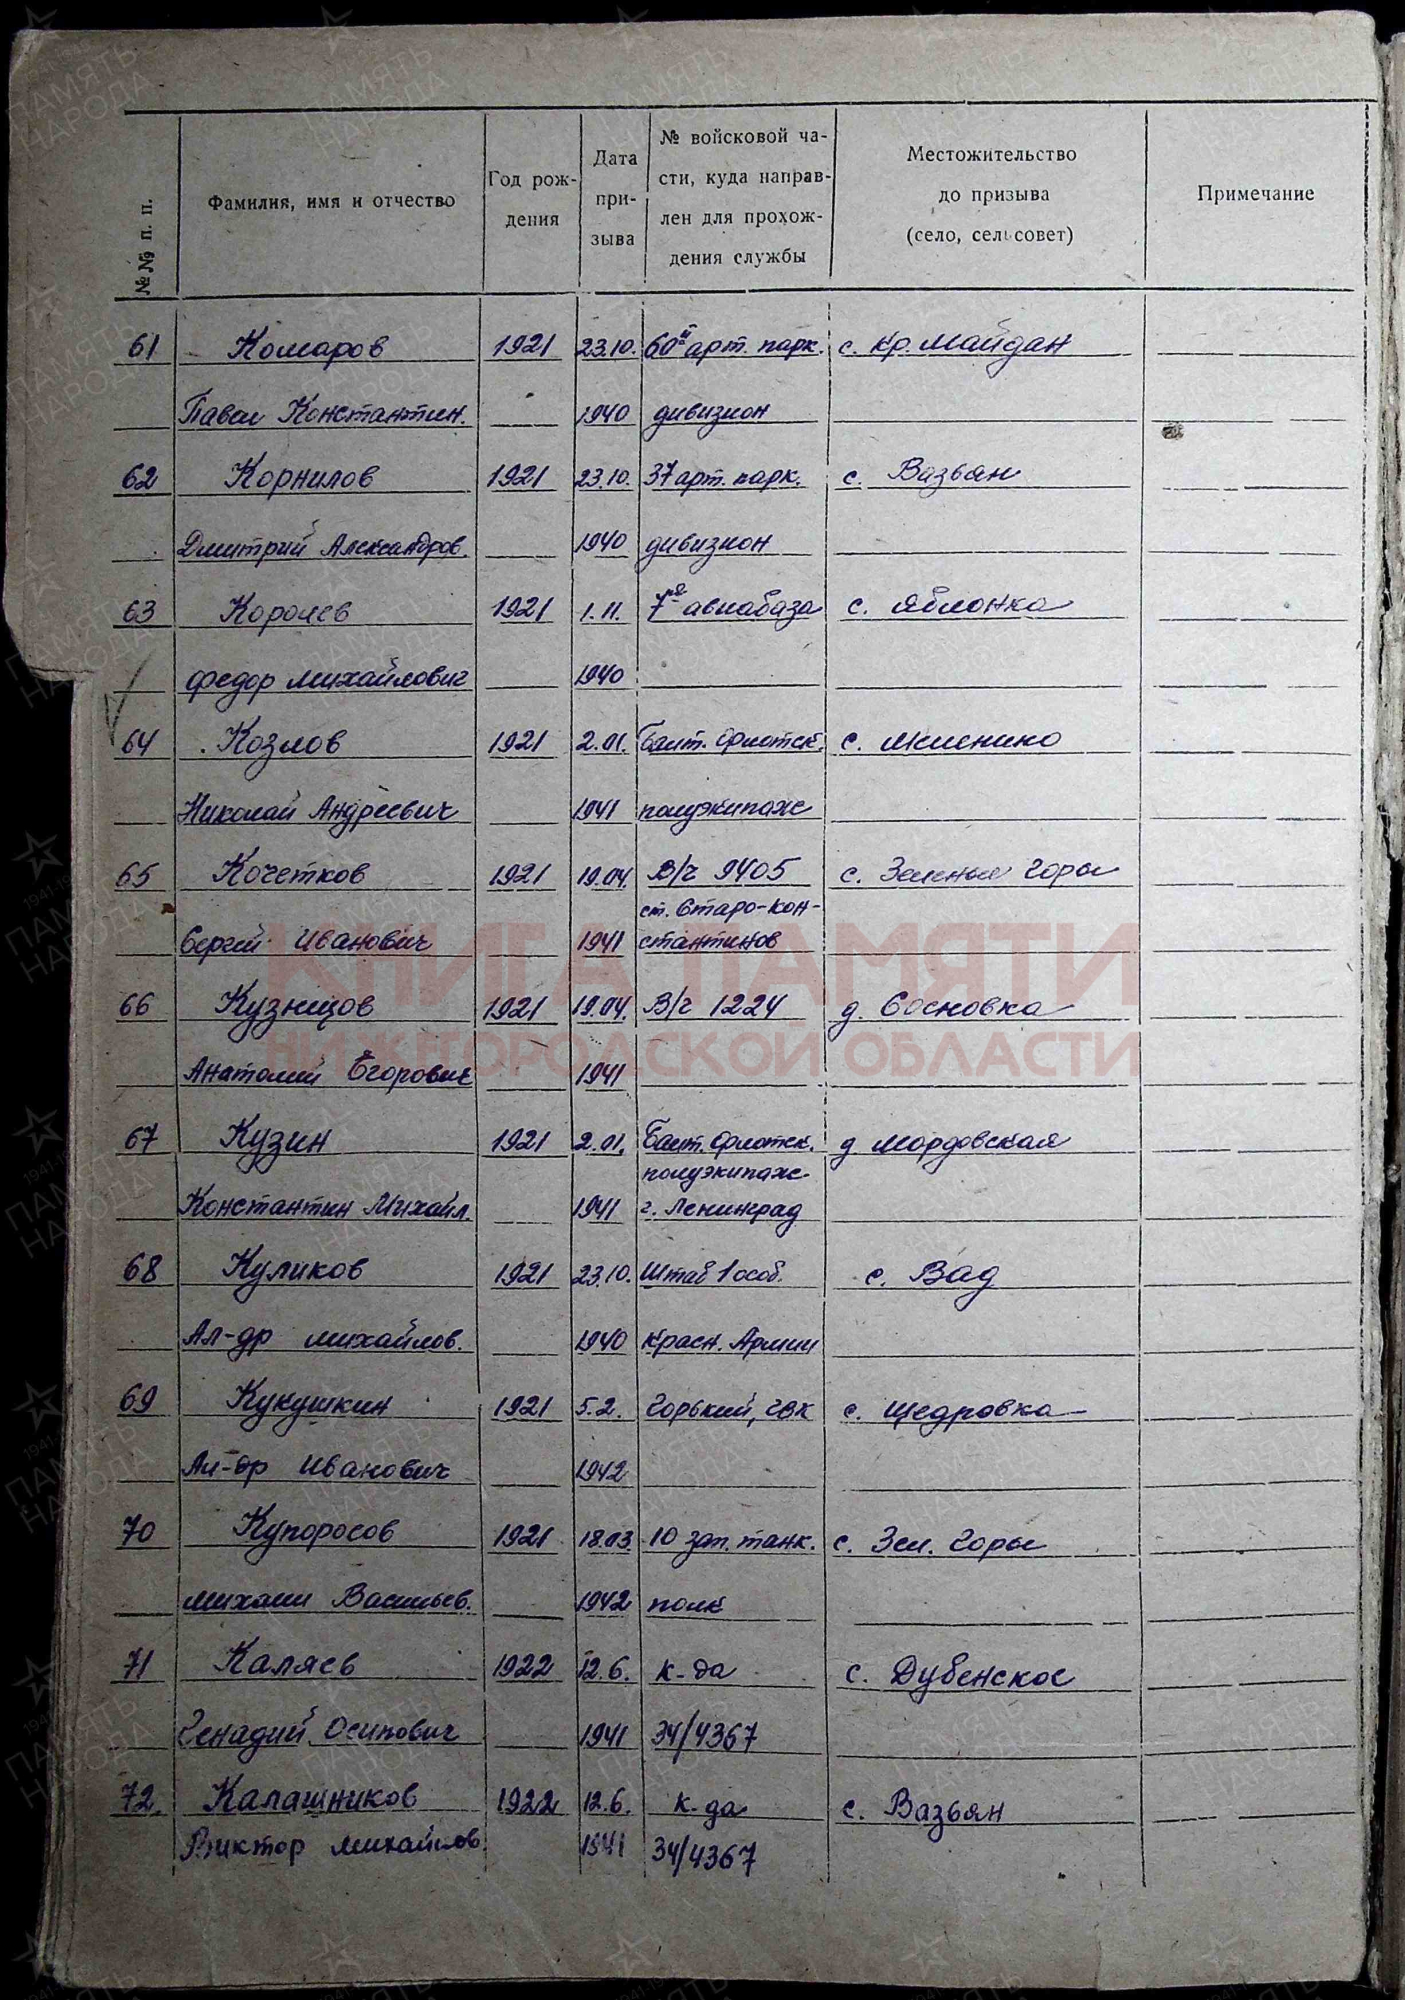 №№ п. п.
Фамилия, имя и отчество
Год рож-
дения
Дата
при-
зыва
№ войсковой ча-
сти, куда направ-
лен для прохож-
дения службы
Местожительство
до призыва
(село, сельсовет)
Примечание
61 Комаров 1921 23.10. 60й арт. парк. с. Кр. Майдан
Павел Константин. 1940 дивизион
62 Корнилов 1921 23.10. 37 арт. парк. с. Вазьян
Дмитрий Александров. 1940 дивизион
63 Королев 1921 1.11. 7ая авиабаза с. Яблонка
Федор Михайлович 1940
64 Козлов 1921 2.01. Балт. Флотск. с.
Николай Андреевич 1941 полуэкипаж
65 Кочетков 1921 19.04. В/ч 9405 с. Зеленые Горы
ст. Старо-кон-
Сергей Иванович 1941 стантинов
66 Кузнецов 1921 19.04. В/ч 1224 д. Сосновка
Анатолий Егорович 1941
67 Кузин 1921 2.01. Балт. Флотск. д Мордовская
полуэкипаж
Константин Михайл. 1941 г. Ленинград
68 Куликов 1921 23.10. Штаб 1 особ. с. Вад
Ал-др Михайлов. 1940 Красн. Армии
69 Кукушкин 1921 5.2. Горький, ГВК с. Щедровка
Ал-др Иванович 1942
70 Купоросов 1921 18.03. 10 зап. танк. с. Зел. Горы
Михаил Васильев. 1942 полк
71 Каляев 1922 12.6. к-да с. Дубенское
Генадий Осипович 1941 34/4367
72. Калашников 1922 12.6. к-да с. Вазьян
Виктор Михайлов. 1941 34/4367
КНИГА ПАМЯТИ
НИЖЕГОРОДСКОЙ ОБЛАСТИ
ПАМЯТЬ
НАРОДА